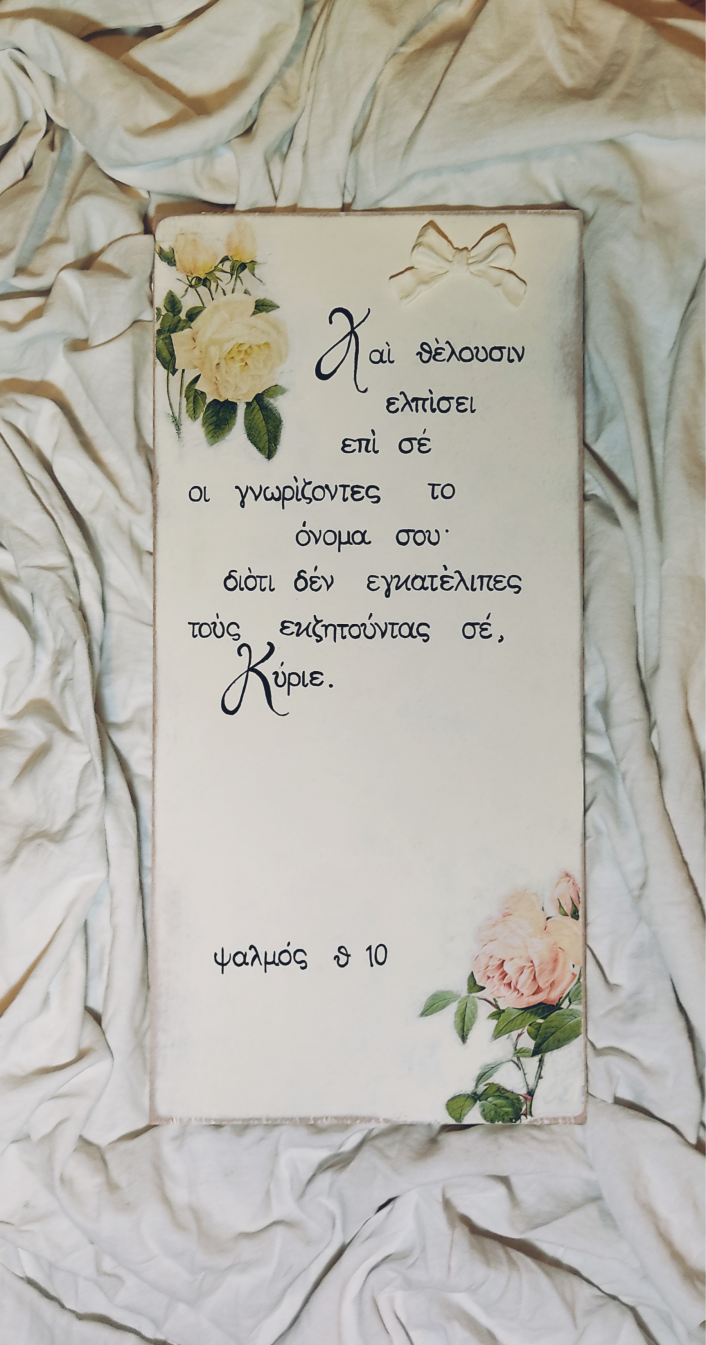 Και̇̀ θὲλουσιν
ελπὶσει
επὶ σέ
οι γνωρὶζοντες το
όνομα σου·
διὸτι δέν εγκατὲλιπες
τοὺς εκζητούντας σέ,
Κύριε.
ψαλμός θ 10